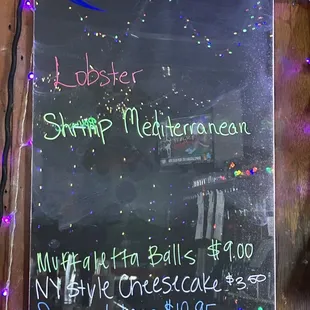 Lobster
Shrimp Mediterranean
Muffaletta Balls $9.00
NY Style Cheesecake $3.50